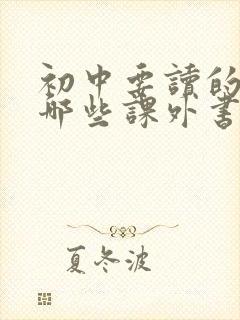 初中要讀的
哪些課外書
夏冬波